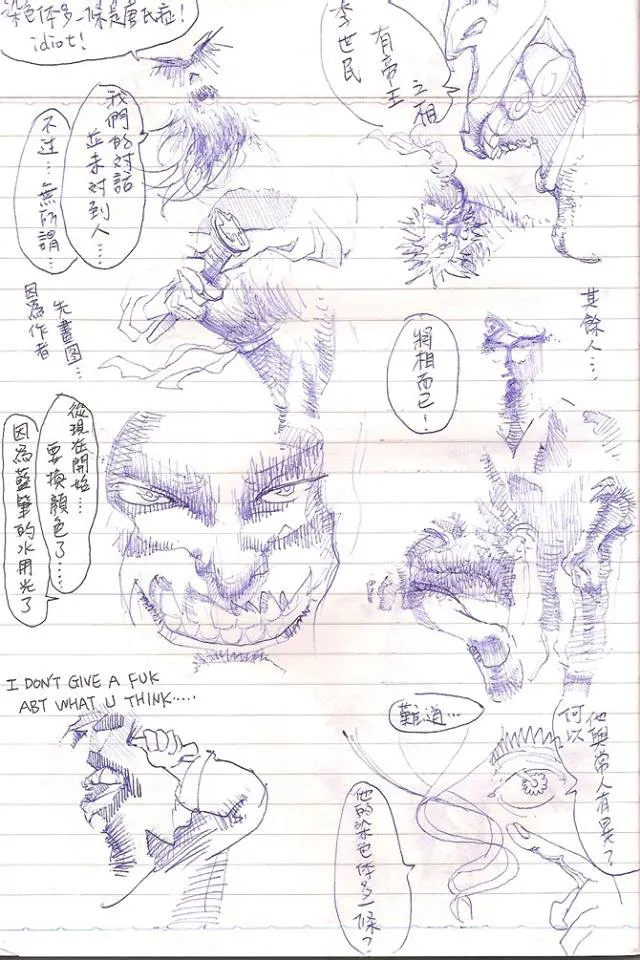 李世民
有帝王
之相
其餘人…
將相而已！
他與常人有異？
何以
難道…
他的染色体多一條？
染色体多一條是唐氏症！
idiot!
我們的对話
並未对到人……
不过…無所謂…
因為作者
先畫图…
從現在開始……
要換顏色了……
因為藍筆的水用光了
I DON'T GIVE A FUK
ABT WHAT U THINK.....